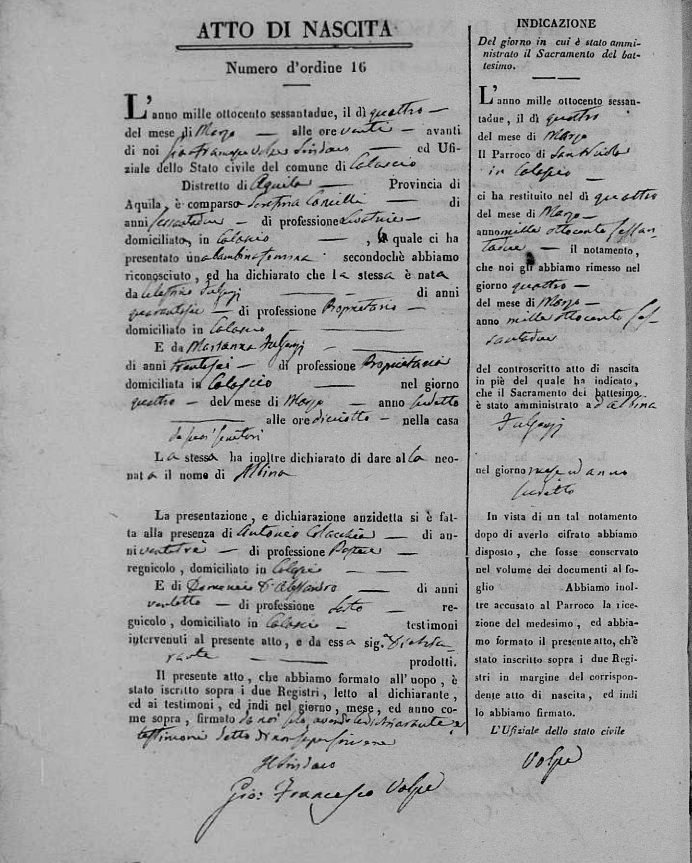 ATTO DI NASCITA
Numero d'ordine 16
L'anno mille ottocento sessantadue, il dì quattro
del mese di Marzo alle ore venti avanti
di noi Gio: Francesco Volpe Sindaco ed Ufi-
ziale dello Stato civile del comune di Calascio
Distretto di Aquila Provincia di
Aquila, è comparsa di
anni sessantadue di professione Levatrice
domiciliata, in Calascio, la quale ci ha
presentato una bambina femina secondochè abbiamo
riconosciuto, ed ha dichiarato che la stessa è nata
da Celestino Fulgenzi di anni
quarantasei di professione Proprietario
domiciliato in Calascio
E da Marianna Fulgenzi
di anni trentasei di professione Proprietaria
domiciliata in Calascio nel giorno
quattro del mese di Marzo anno sudetto
alle ore diciotto nella casa
de suoi Genitori
La stessa ha inoltre dichiarato di dare alla neo-
nata il nome di Albina
La presentazione, e dichiarazione anzidetta si è fat-
ta alla presenza di Antonio di an-
ni ventitre di professione
regnicolo, domiciliato in Calascio
E di Domenico d'Alessandro di anni
ventotto di professione Sarto re-
gnicolo, domiciliato in Calascio testimoni
intervenuti al presente atto, e da essa sig.ª dichia-
rante prodotti.
Il presente atto, che abbiamo formato all'uopo, è
stato iscritto sopra i due Registri, letto al dichiarante,
ed ai testimoni, ed indi nel giorno, mese, ed anno co-
me sopra, firmato da noi solo, avendo la dichiarante, e
testimoni detto di non saper scrivere
Il Sindaco
Gio: Francesco Volpe
INDICAZIONE
Del giorno in cui è stato ammi-
nistrato il Sacramento del bat-
tesimo.
L'anno mille ottocento sessan-
tadue, il dì quattro
del mese di Marzo
Il Parroco di San Nicola
in Calascio
ci ha restituito nel dì quattro
del mese di Marzo
anno mille ottocento sessan-
tadue il notamento,
che noi gli abbiamo rimesso nel
giorno quattro
del mese di Marzo
anno mille ottocento ses-
santadue
del controscritto atto di nascita
in piè del quale ha indicato,
che il Sacramento del battesimo
è stato amministrato a d'Albina
Fulgenzi
nel giorno mese ed anno
sudetto
In vista di un tal notamento
dopo di averlo cifrato abbiamo
disposto, che fosse conservato
nel volume dei documenti al fo-
glio Abbiamo inol-
tre accusato al Parroco la rice-
zione del medesimo, ed abbia-
mo formato il presente atto, ch'è
stato inscritto sopra i due Regi-
stri in margine del corrispon-
dente atto di nascita, ed indi
lo abbiamo firmato.
L'Ufiziale dello stato civile
Volpe